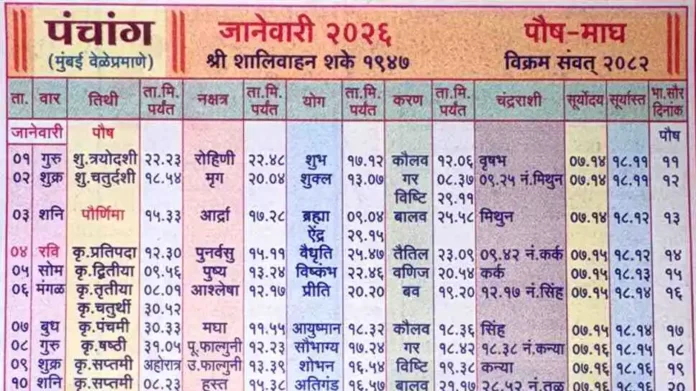 पंचांग जानेवारी २०२६ पौष-माघ
(मुंबई वेळेप्रमाणे) श्री शालिवाहन शके १९४७ विक्रम संवत् २०८२
ता. वार तिथी ता.मि. पर्यंत नक्षत्र ता.मि. पर्यंत योग ता.मि. पर्यंत करण ता.मि. पर्यंत चंद्रराशी सूर्योदय सूर्यास्त भा.सौर दिनांक
जानेवारी पौष पौष
०१ गुरु शु.त्रयोदशी २२.२३ रोहिणी २२.४८ शुभ १७.१२ कौलव १२.०६ वृषभ ०७.१४ १८.११ ११
०२ शुक्र शु.चतुर्दशी १८.५४ मृग २०.०४ शुक्ल १३.०७ गर ०८.३७ ०९.२५ नं.मिथुन ०७.१४ १८.११ १२
विष्टि २९.११
०३ शनि पौर्णिमा १५.३३ आर्द्रा १७.२८ ब्रह्मा ०९.०४ बालव २५.५८ मिथुन ०७.१४ १८.१२ १३
ऐंद्र २९.१५
०४ रवि कृ.प्रतिपदा १२.३० पुनर्वसु १५.११ वैधृति २५.४७ तैतिल २३.०९ ०९.४२ नं.कर्क ०७.१५ १८.१२ १४
०५ सोम कृ.द्वितीया ०९.५६ पुष्य १३.२४ विष्कंभ २२.४६ वणिज २०.५४ कर्क ०७.१५ १८.१३ १५
०६ मंगळ कृ.तृतीया ०८.०१ आश्लेषा १२.१७ प्रीति २०.२० बव १९.२० १२.१७ नं.सिंह ०७.१५ १८.१४ १६
कृ.चतुर्थी ३०.५२
०७ बुध कृ.पंचमी ३०.३३ मघा ११.५५ आयुष्मान १८.३२ कौलव १८.३६ सिंह ०७.१५ १८.१४ १७
०८ गुरु कृ.षष्ठी ३१.०५ पू.फाल्गुनी १२.२३ सौभाग्य १७.२४ गर १८.४२ १८.३८ नं.कन्या ०७.१५ १८.१५ १८
०९ शुक्र कृ.सप्तमी अहोरात्र उ.फाल्गुनी १३.३९ शोभन १६.५४ विष्टि १९.३८ कन्या ०७.१५ १८.१६ १९
१० शनि कृ.सप्तमी ०८.२३ हस्त १५.३८ अतिगंड १६.५७ बालव २१.१७